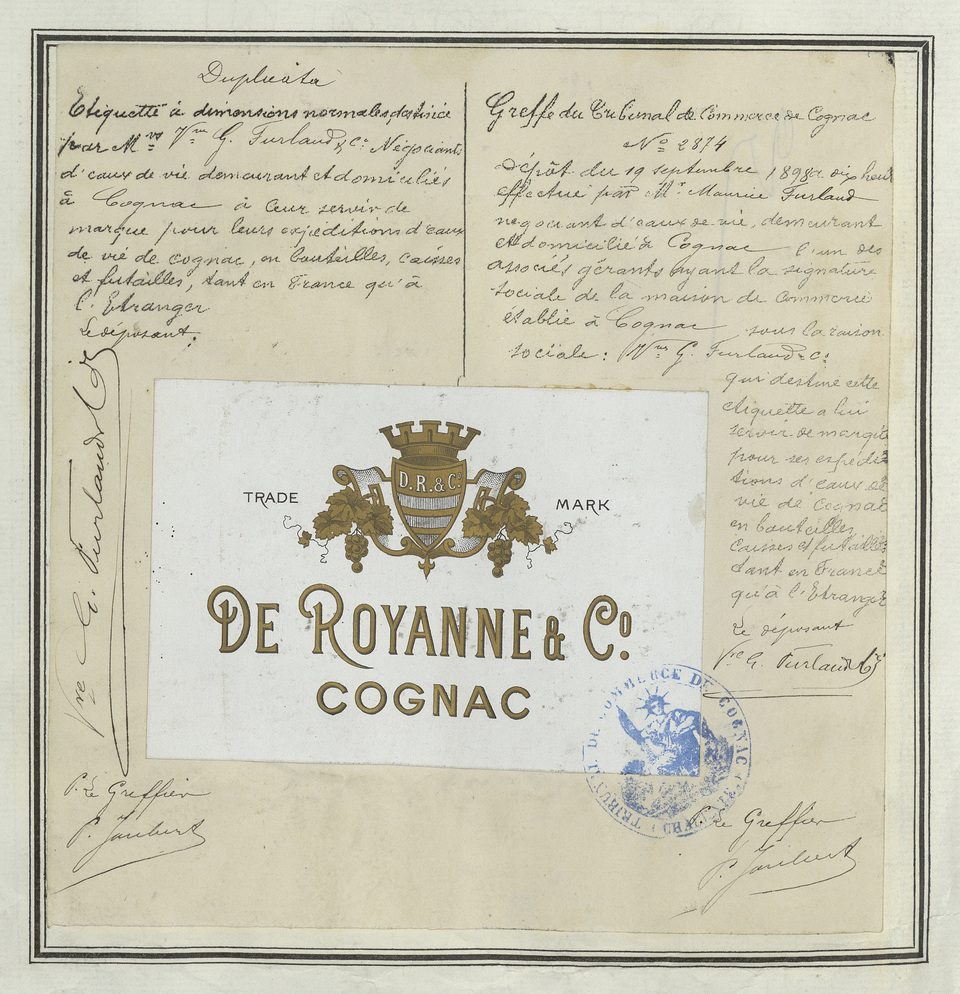 Duplicata
Etiquette à dimensions normales, destinée
par M.rs Vve G. Furlaud & Cº Négociants
d'eaux de vie demeurant et domiciliés
à Cognac à leur servir de
marque pour leurs expéditions d'eaux
de vie de cognac, en bouteilles, caisses
et futailles, tant en France qu'à
l'Etranger
Le déposant.
Vve G. Furlaud & Cº
P. Le Greffier
P. Joubert
Greffe du Tribunal de Commerce de Cognac
Nº 2874
Dépôt du 19 septembre 1898 à dix heures
effectué par M.r Maurice Furlaud
négociant d'eaux de vie, demeurant
et domicilié à Cognac l'un des
associés gérants ayant la signature
sociale de la maison de commerce
établie à Cognac sous la raison
sociale: Vve G. Furlaud & Cº
qui destine cette
étiquette a lui
servir de marque
pour ses expédi
tions d'eaux de
vie de Cognac
en bouteilles
caisses et futailles
tant en France
qu'à l'Etranger
Le déposant
Vve G. Furlaud & Cº
TRADE MARK
D.R.&Cº
DE ROYANNE & Cº
COGNAC
TRIBUNAL DE COMMERCE DE COGNAC (CHARENTE)
P. Le Greffier
P. Joubert